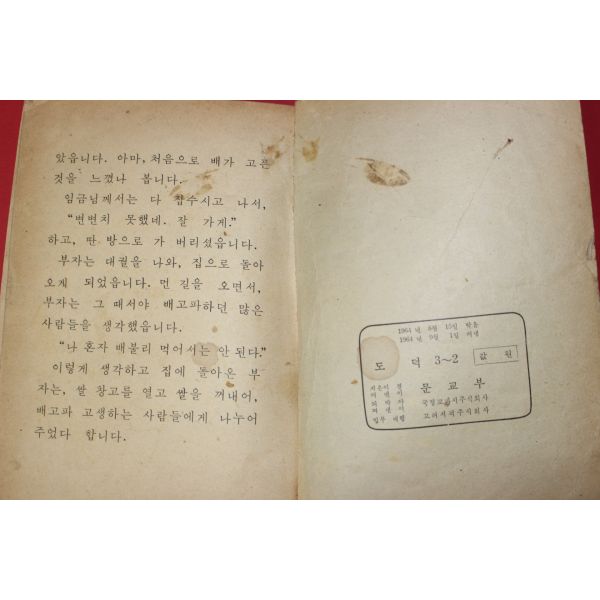 았읍니다. 아마, 처음으로 배가 고픈
것을 느꼈나 봅니다.
임금님께서는 다 잡수시고 나서,
“변변치 못했네. 잘 가게.”
하고, 딴 방으로 가 버리셨읍니다.
부자는 대궐을 나와, 집으로 돌아
오게 되었읍니다. 먼 길을 오면서,
부자는 그 때서야 배고파하던 많은
사람들을 생각했읍니다.
“나 혼자 배불리 먹어서는 안 된다.”
이렇게 생각하고 집에 돌아온 부
자는, 쌀 창고를 열고 쌀을 꺼내어,
배고파 고생하는 사람들에게 나누어
주었다 합니다.
1964년 8월 15일 박음
1964년 9월 1일 펴냄
도덕 3~2
값 원
지은이 겸
문교부
국정교과서주식회사
고려서적주식회사